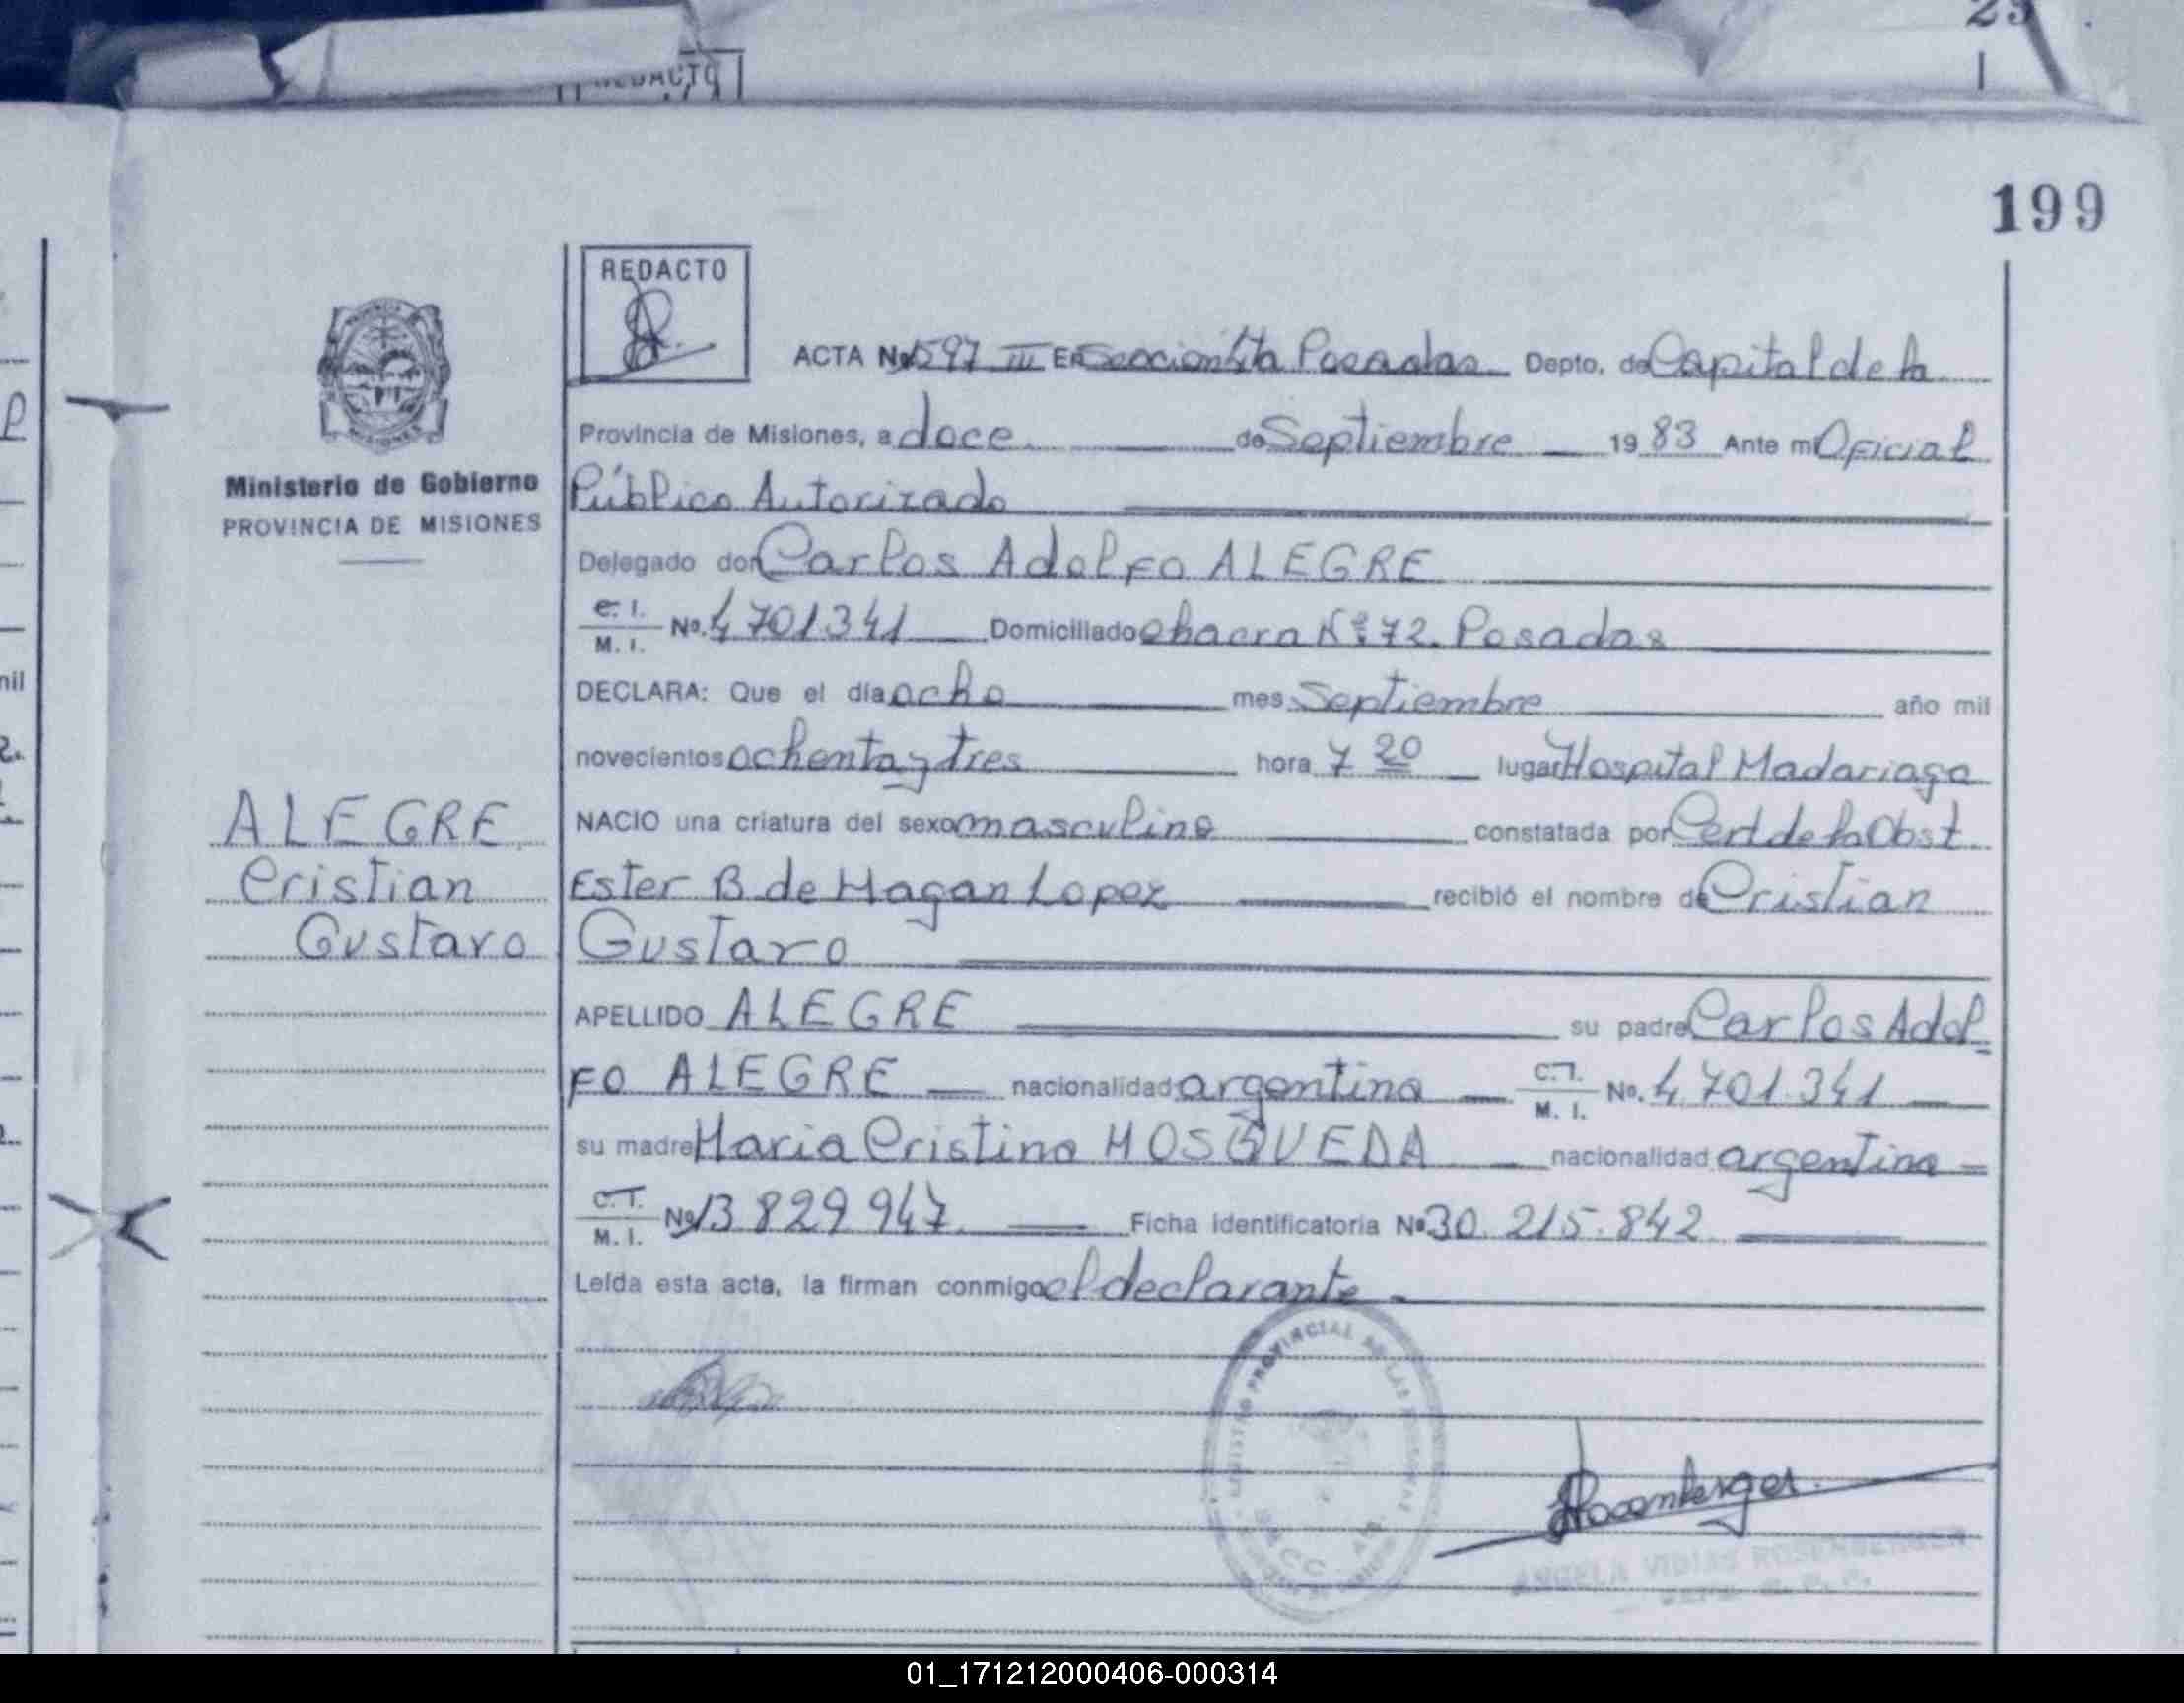 REDACTO
199
REDACTO
ACTA No 1597 III En Sección 4ta Posadas Depto. de Capital de la
Provincia de Misiones, a doce de Septiembre 1983 Ante mi Oficial
Público Autorizado
Ministerio de Gobierno
PROVINCIA DE MISIONES
Delegado don Carlos Adolfo ALEGRE
C. I.
M. I. No. 4701341 Domiciliado chacra Nº 72. Posadas
DECLARA: Que el día ocho mes Septiembre año mil
novecientos ochenta y tres hora 7 20 lugar Hospital Madariaga
NACIO una criatura del sexo masculino constatada por Cert de la Obst
Ester B de Magan Lopez recibió el nombre de Cristian
Gustavo
ALEGRE
Cristian
Gustavo
APELLIDO ALEGRE su padre Carlos Adol
fo ALEGRE nacionalidad argentina C.I.
M. I. No. 4.701.341
su madre Maria Cristina MOSQUEDA nacionalidad argentina
C.I.
M. I. No 13 829 947 Ficha identificatoria No 30.215.842
Leída esta acta, la firman conmigo el declarante
REGISTRO PROVINCIAL DE LAS PERSONAS
SECC.
Rosenberger
ANGELA VIDIAS ROSENBERGER
01_171212000406-000314